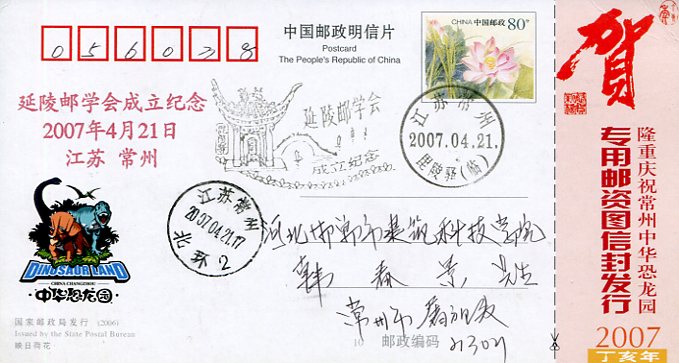 056038
中国邮政明信片
Postcard
The People's Republic of China
CHINA 中国邮政 80分
延陵邮学会成立纪念
2007年4月21日
江苏 常州
延陵邮学会
成立纪念
江苏常州
2007.04.21.
毗陵驿(临)
江苏常州
2007.04.21.17
北环2
河北邯郸市建筑科技学院
韩春景 先生
常州市
邮政编码
213011
DINOSAUR LAND
CHINA CHANGZHOU
中华恐龙园
国家邮政局发行 (2006)
Issued by the State Postal Bureau
映日荷花
贺
隆重庆祝常州中华恐龙园
专用邮资图信封发行
2007
丁亥年